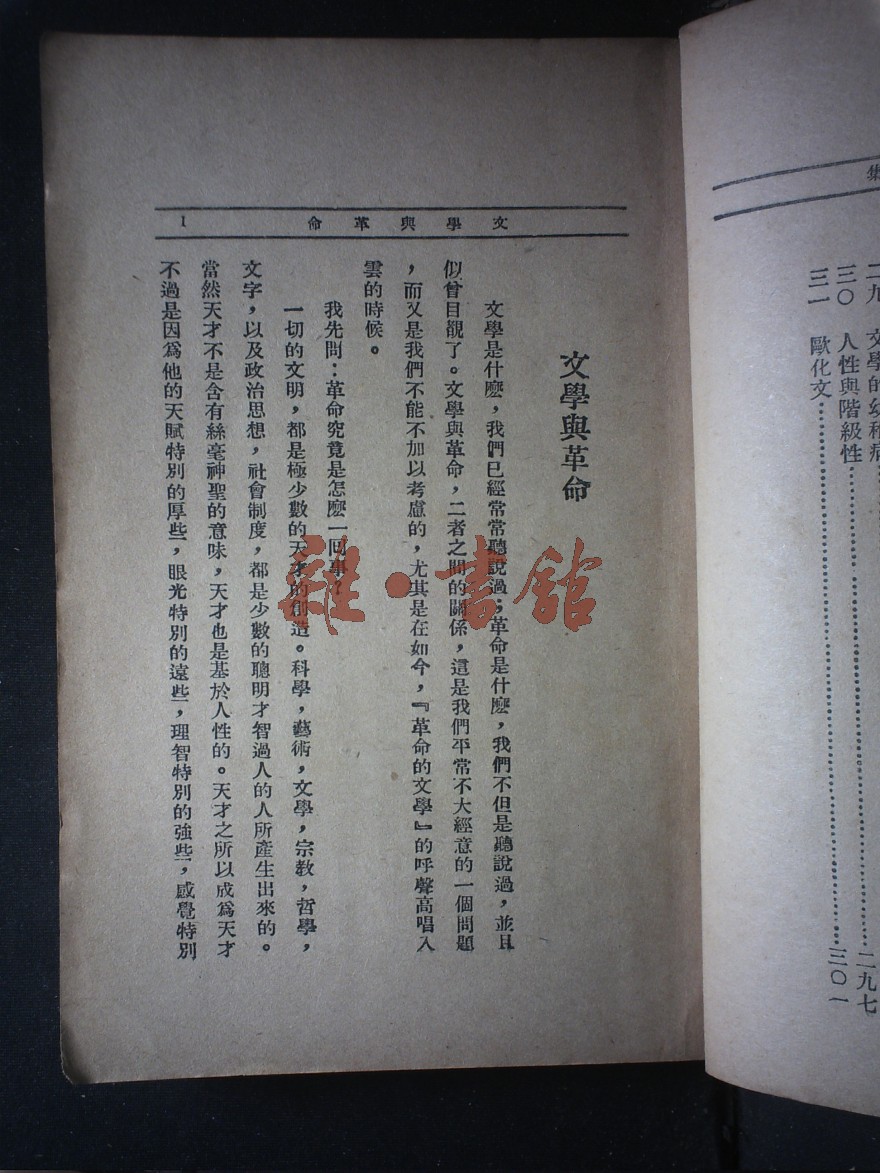 集
二九 文學的幼稚病
三〇 人性與階級性 二九七
三一 歐化文 三〇一
文學與革命 1
文學與革命
文學是什麽，我們已經常常聽說過；革命是什麽，我們不但是聽說過，並且
似曾目覩了。文學與革命，二者之間的關係，這是我們平常不大經意的一個問題
，而又是我們不能不加以考慮的，尤其是在如今，『革命的文學』的呼聲高唱入
雲的時候。
我先問：革命究竟是怎麽一回事？
一切的文明，都是極少數的天才的創造。科學，藝術，文學，宗教，哲學，
文字，以及政治思想，社會制度，都是少數的聰明才智過人的人所產生出來的。
當然天才不是含有絲毫神聖的意味，天才也是基於人性的。天才之所以成爲天才
不過是因爲他的天賦特別的厚些，眼光特別的遠些，理智特別的強些，感覺特別
雜·書館